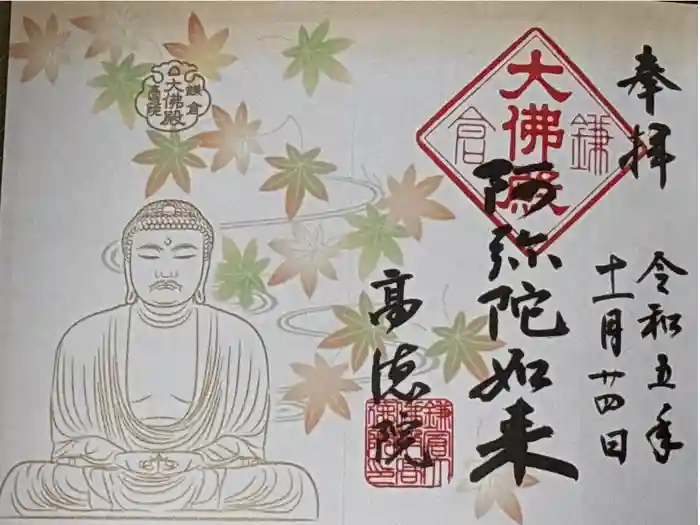 奉拝
令和五年
十一月廿四日
大佛殿
鎌倉
阿弥陀如来
高徳院
鎌倉
大佛殿
高徳院